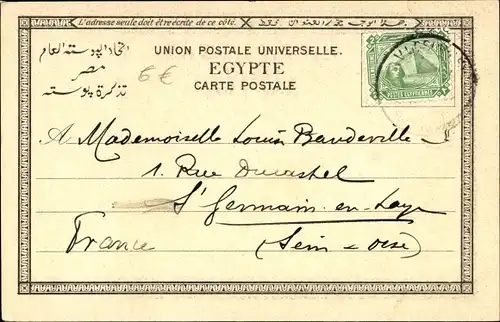 L'adresse seule doit être écrite de ce côté.
UNION POSTALE UNIVERSELLE.
EGYPTE
CARTE POSTALE
اتحاد البوستة العام
مصر
تذكرة بوستة
6 €
POSTES EGYPTIENNES
A Mademoiselle Louis Baudeville
1. Rue Ducastel
St Germain en-Laye
France (Sein-oise)